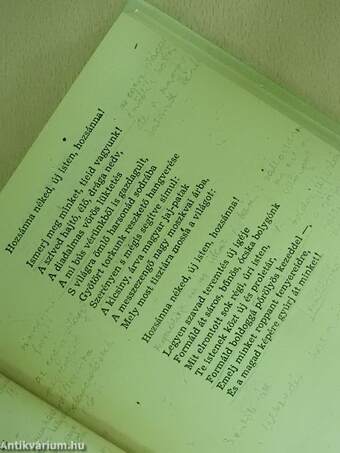 Hozsánna néked, új isten, hozsánna!
Ismerj meg minket, tieid vagyunk!
A szíved hajtó, éltő, drága nedv,
A diadalmas vörös lüktetés
A mi bús vérünkből is gazdagult,
S világra ömlő harsonád sodrába
Gyötört torkunk rezzenő hangverése
Szerényen s mégis segítve simul:
A kicsinyi ár, a magyar jaj-patak
A messzezengő nagy moszkvai árba,
Mély most tisztára mossa a világot:
Hozsánna néked, új isten, hozsánna!
Legyen szavad teremtés új igéje
Formáld át sáros, bűnös, ócska bolygónk
Mit elrontott sok régi, úri isten,
Te istenek közt új és proletár,
Formáld boldoggá pőrölyös kezeddel —,
Emelj minket roppant tenyeredre,
És a magad képére gyúrj át minket!
Antikvárium.hu